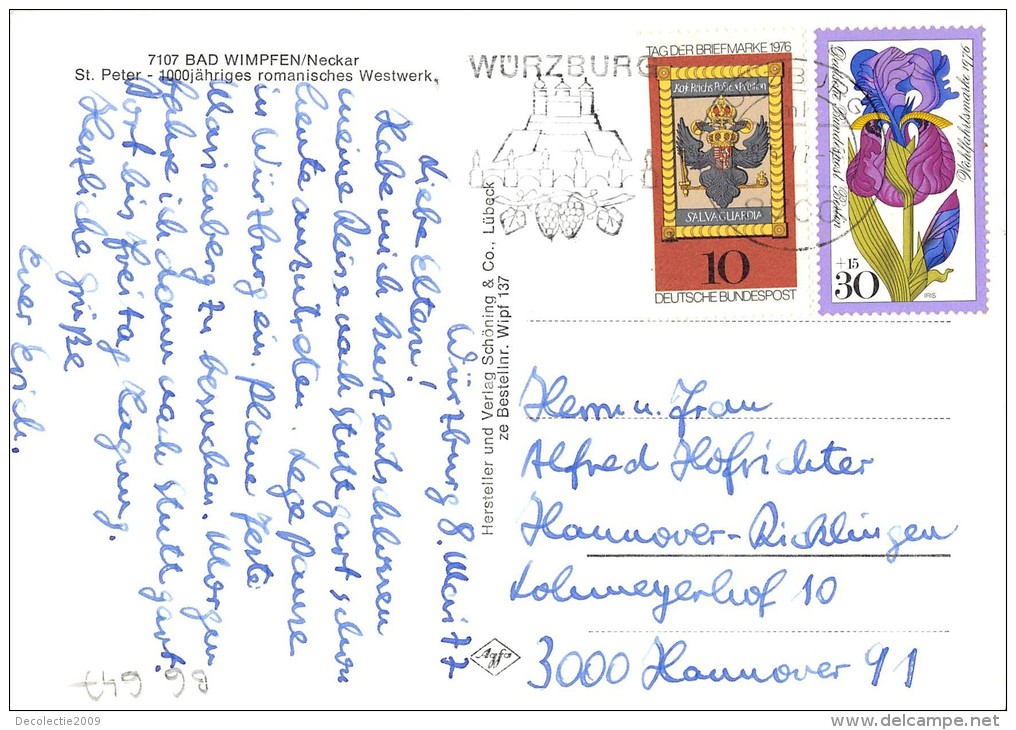 7107 BAD WIMPFEN/Neckar
St. Peter - 1000jähriges romanisches Westwerk,
Würzburg 8. Mai 77
Liebe Eltern!
Habe mich kurz entschlossen
meine Reise nach Stuttgart schon
heute anzutreten. Lege Pause
in Würzburg ein. Plane Feste
Marienberg zu besuchen. Morgen
fahre ich dann nach Stuttgart.
Dort bis Freitag Tagung.
Herzliche Grüße
Euer Erich.
Hersteller und Verlag Schöning & Co., Lübeck
ze Bestellnr. Wipf 137
Agfa
WÜRZBURG
TAG DER BRIEFMARKE 1976
Kay. Reichs Post Expedition
SALVA GUARDIA
10
DEUTSCHE BUNDESPOST
Wohlfahrtsmarke 1976
Deutsche Bundespost Berlin
+15
30
IRIS
Herrn u. Frau
Alfred Hofrichter
Hannover-Ricklingen
Lohmeyerhof 10
3000 Hannover 91
Decolectie2009
http://www.delcampe.net